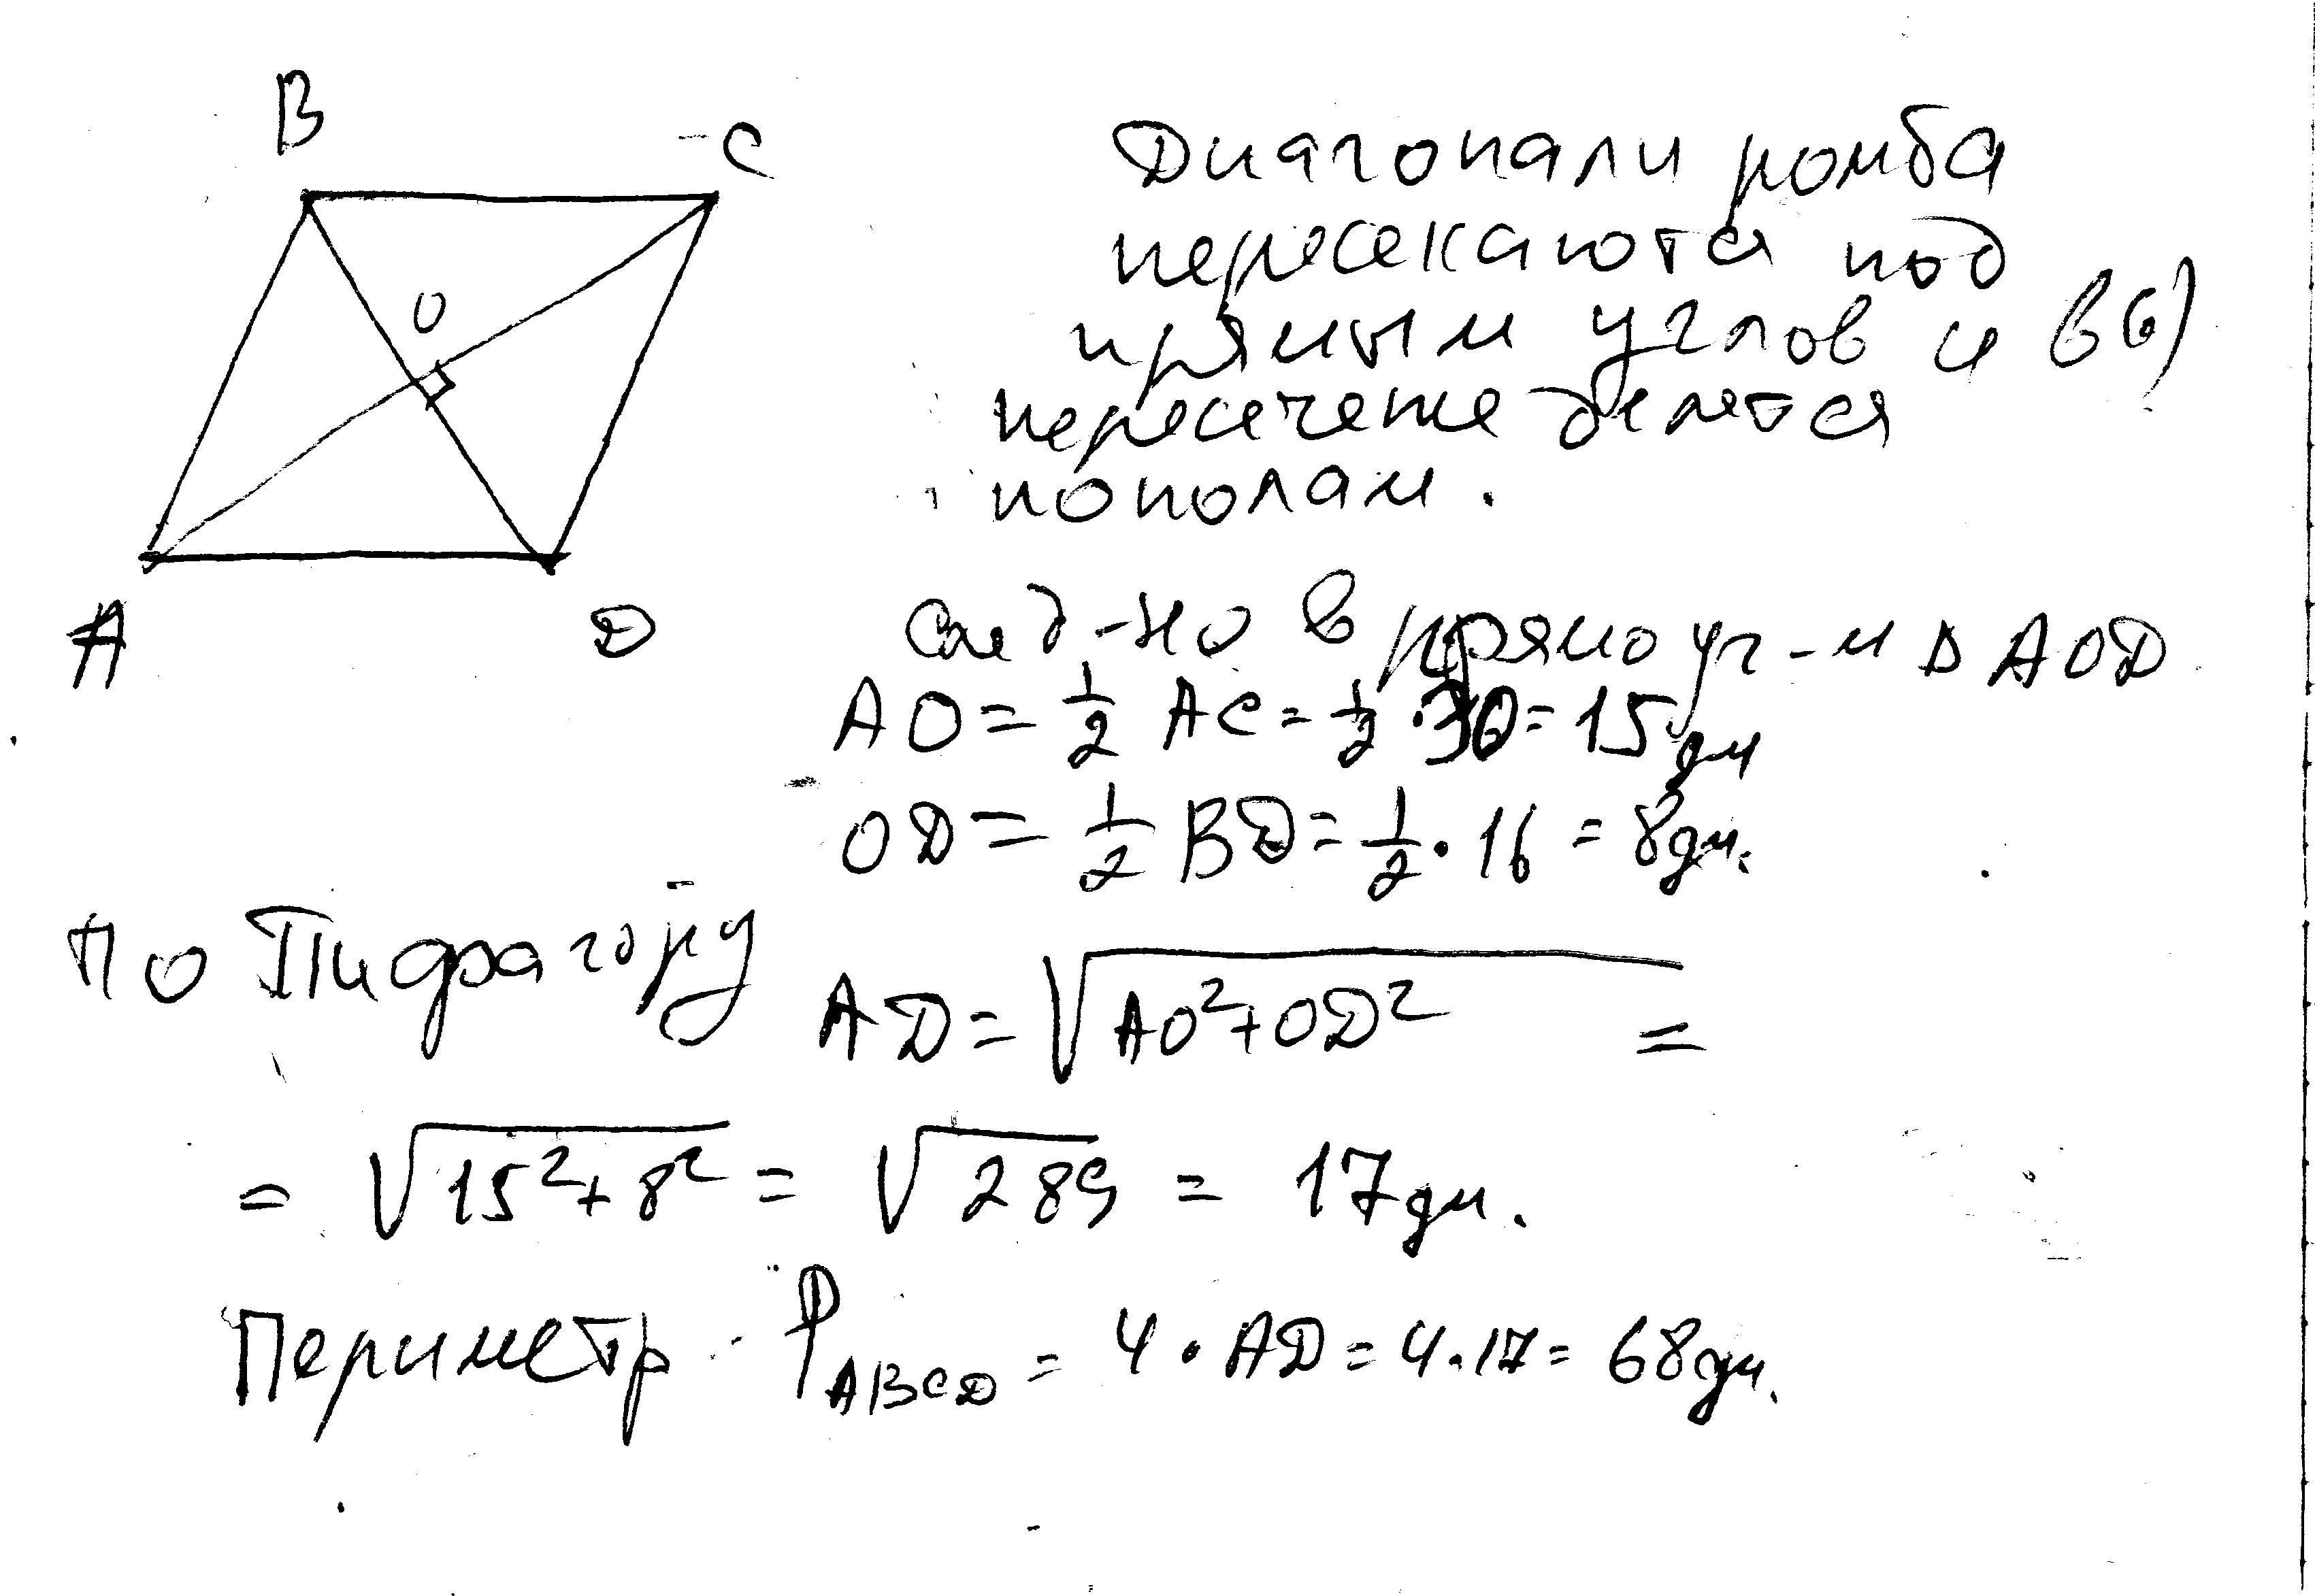 B
C
O
A
D
Диагонали ромба
пересекаются под
прямым углов и в(6)
пересечение делятся
пополам.
След-но в прямоуг-м Δ AOD
AO = 1/2 AC = 1/2 · 30 = 15 дм
OD = 1/2 BD = 1/2 · 16 = 8 дм.
По Пифагору AD = √(AO² + OD²) =
= √(15² + 8²) = √289 = 17 дм.
Периметр P ABCD = 4 · AD = 4 · 17 = 68 дм.